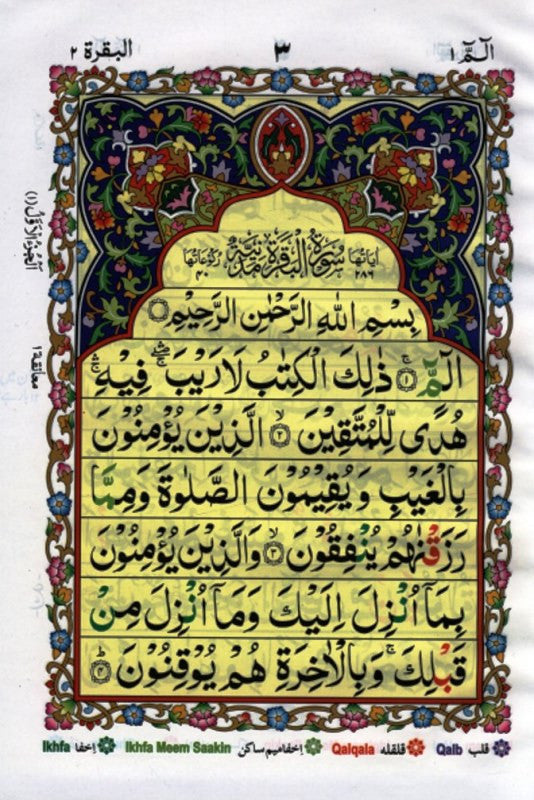 الٓمّٓ ١
٣
البقرة ٢
اَلْجُزْءُ الْاَوَّلُ (١)
اٰيَاتُهَا ٢٨٦
سُوْرَةُ الْبَقَرَةِ مَدَنِيَّةٌ
رُكُوْعَاتُهَا ٤٠
بِسْمِ اللّٰهِ الرَّحْمٰنِ الرَّحِيْمِ
الٓمّٓ ۚ ١ ذٰلِكَ الْكِتٰبُ لَا رَيْبَ ۛ فِيْهِ ۛ
هُدًى لِّلْمُتَّقِيْنَ ۙ ٢ الَّذِيْنَ يُؤْمِنُوْنَ
بِالْغَيْبِ وَيُقِيْمُوْنَ الصَّلٰوةَ وَمِمَّا
رَزَقْنٰهُمْ يُنْفِقُوْنَ ۙ ٣ وَالَّذِيْنَ يُؤْمِنُوْنَ
بِمَاۤ اُنْزِلَ اِلَيْكَ وَمَاۤ اُنْزِلَ مِنْ
قَبْلِكَ ۚ وَبِالْاٰخِرَةِ هُمْ يُوْقِنُوْنَ ؕ ٤
معانقة ١
قلب Qalb قلقله Qalqala اخفا ميم ساكن Ikhfa Meem Saakin اِخفا Ikhfa